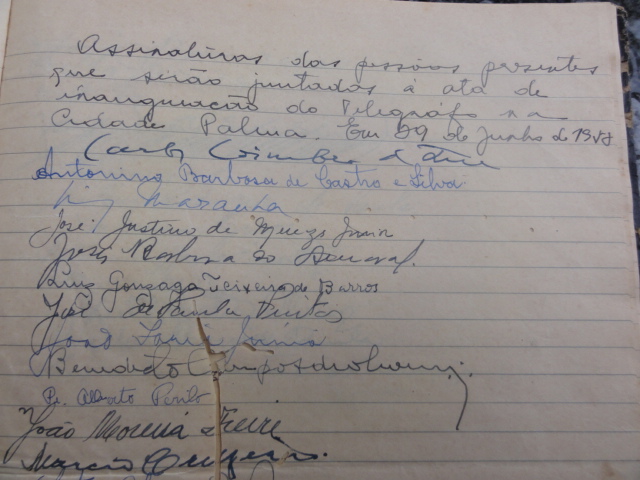 Assinaturas das pessôas presentes
que serão juntadas à ata de
inauguração do Telegráfo na
Cidade Palma. Em 29 de Junho d 1958
Carlos Coimbra
Antonino Barbosa de Castro e Silva
Maranha
José Justino de Junior
José Barbosa do Amaral.
Luis Gonzaga Teixeira de Barros
João de Paula Freitas
João
Benedito Campos
Pe. Alberto
João Moreira Freire
Marcio